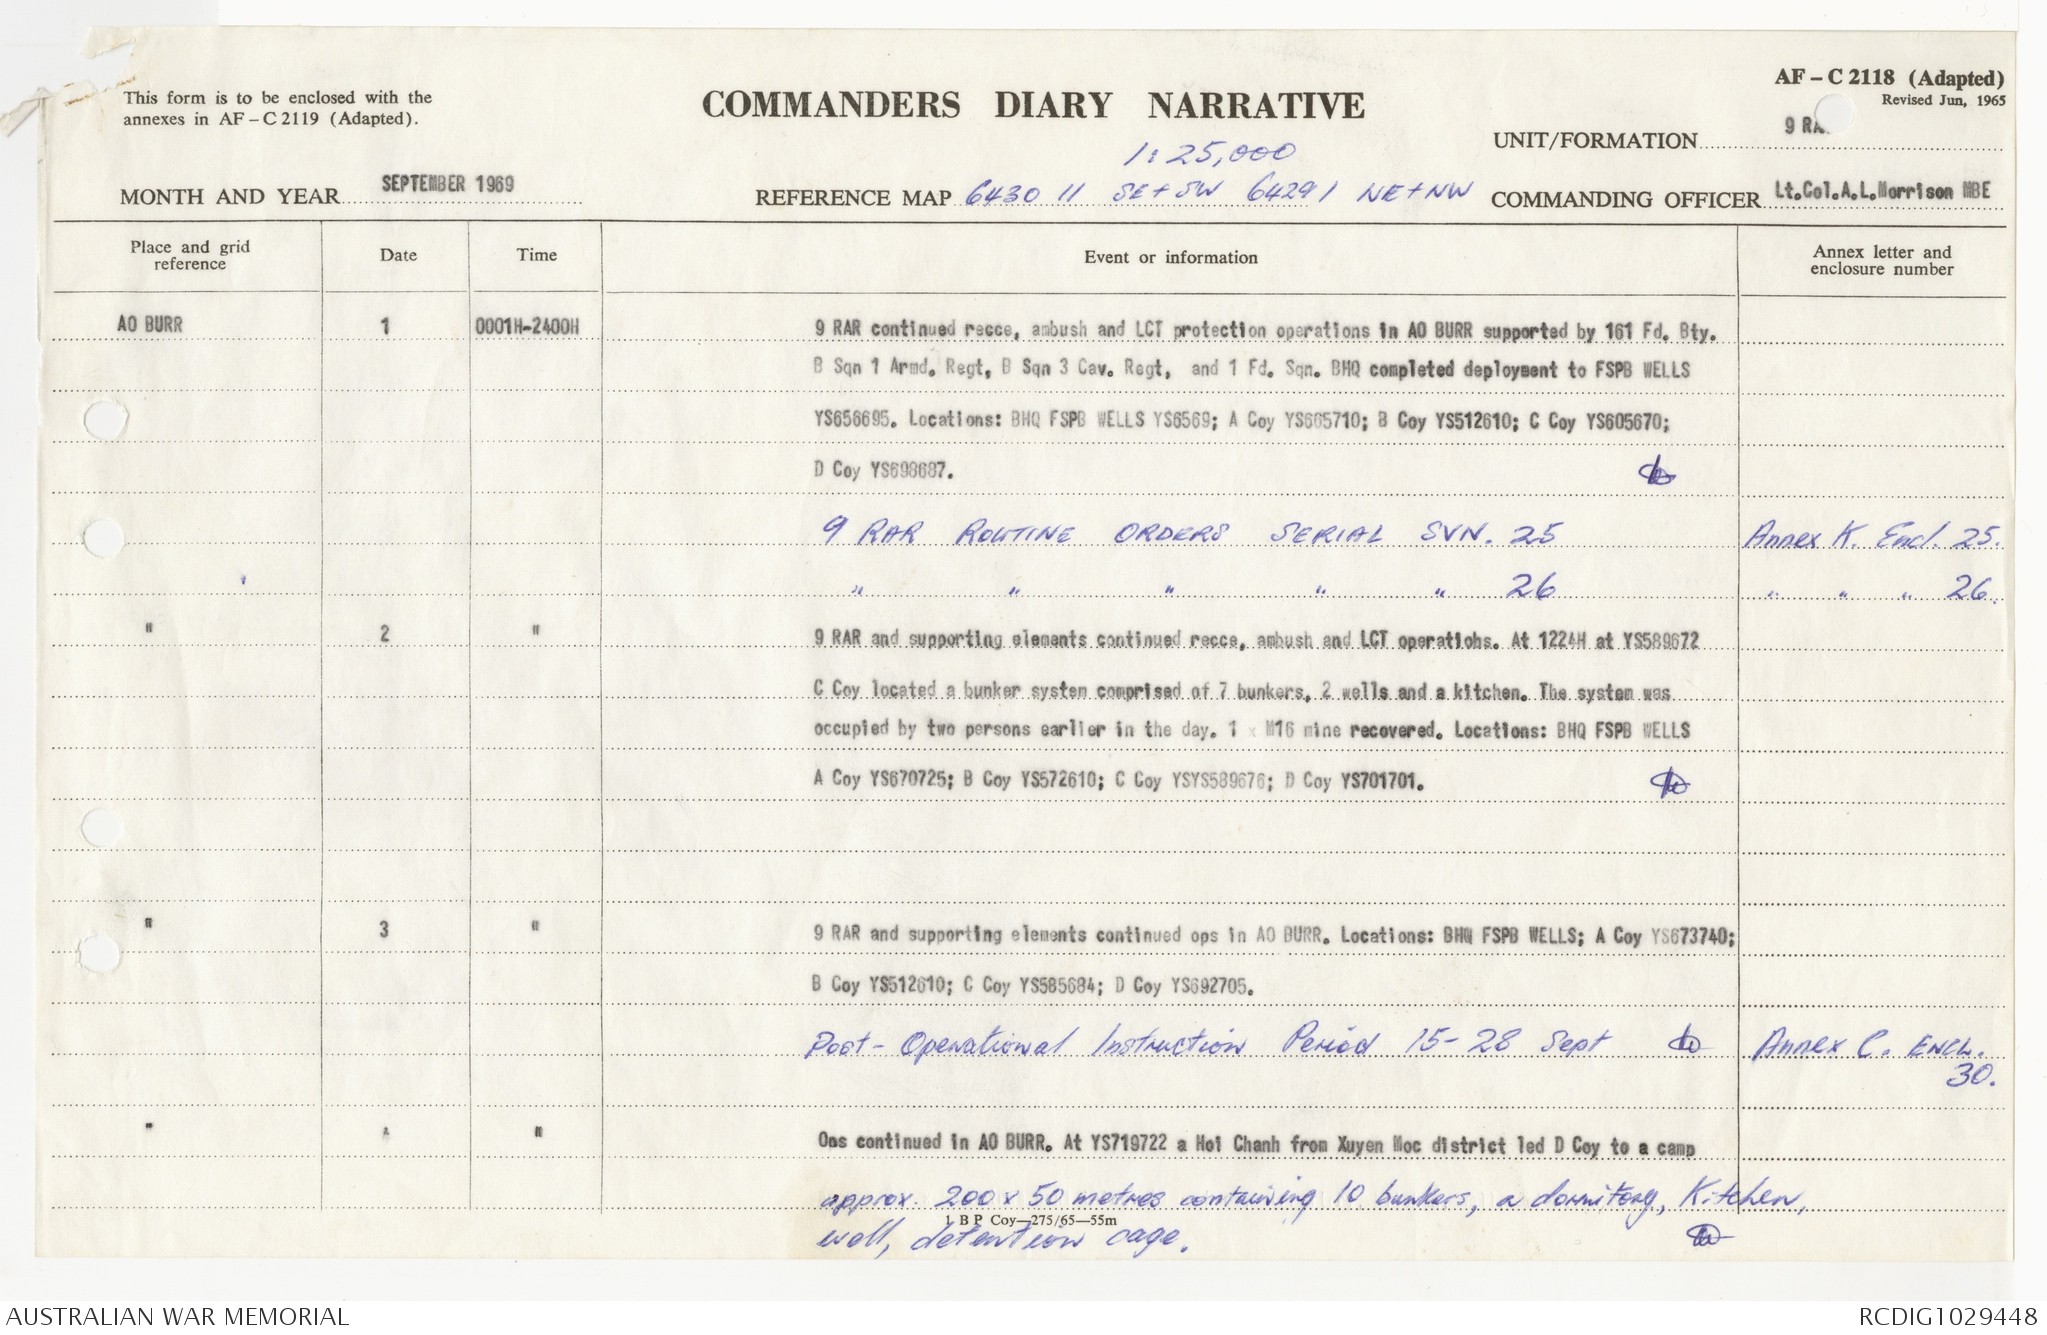 This form is to be enclosed with the
annexes in AF – C 2119 (Adapted).
COMMANDERS DIARY NARRATIVE
AF – C 2118 (Adapted)
Revised Jun, 1965
UNIT/FORMATION 9 RA
1:25,000
MONTH AND YEAR SEPTEMBER 1969
REFERENCE MAP 6430 11 SE+SW 6429 1 NE+NW
COMMANDING OFFICER Lt.Col.A.L.Morrison MBE
Place and grid reference
Date
Time
Event or information
Annex letter and enclosure number
AO BURR 1 0001H-2400H 9 RAR continued recce, ambush and LCT protection operations in AO BURR supported by 161 Fd. Bty.
B Sqn 1 Armd. Regt, B Sqn 3 Cav. Regt, and 1 Fd. Sqn. BHQ completed deployment to FSPB WELLS
YS656695. Locations: BHQ FSPB WELLS YS6569; A Coy YS665710; B Coy YS512610; C Coy YS605670;
D Coy YS698687.
9 RAR ROUTINE ORDERS SERIAL SVN. 25 Annex K. Encl. 25.
" " " " " 26 " " " 26.
" 2 " 9 RAR and supporting elements continued recce, ambush and LCT operations. At 1224H at YS589672
C Coy located a bunker system comprised of 7 bunkers, 2 wells and a kitchen. The system was
occupied by two persons earlier in the day. 1 x M16 mine recovered. Locations: BHQ FSPB WELLS
A Coy YS670725; B Coy YS572610; C Coy YSYS589676; D Coy YS701701.
" 3 " 9 RAR and supporting elements continued ops in AO BURR. Locations: BHQ FSPB WELLS; A Coy YS673740;
B Coy YS512610; C Coy YS585684; D Coy YS692705.
Post- Operational Instruction Period 15-28 Sept Annex C. ENCL.
30.
" 4 " Ops continued in AO BURR. At YS719722 a Hoi Chanh from Xuyen Moc district led D Coy to a camp
approx. 200 x 50 metres containing 10 bunkers, a dormitory, Kitchen,
1 B P Coy—275/65—55m
well, detention cage.
AUSTRALIAN WAR MEMORIAL
RCDIG1029448